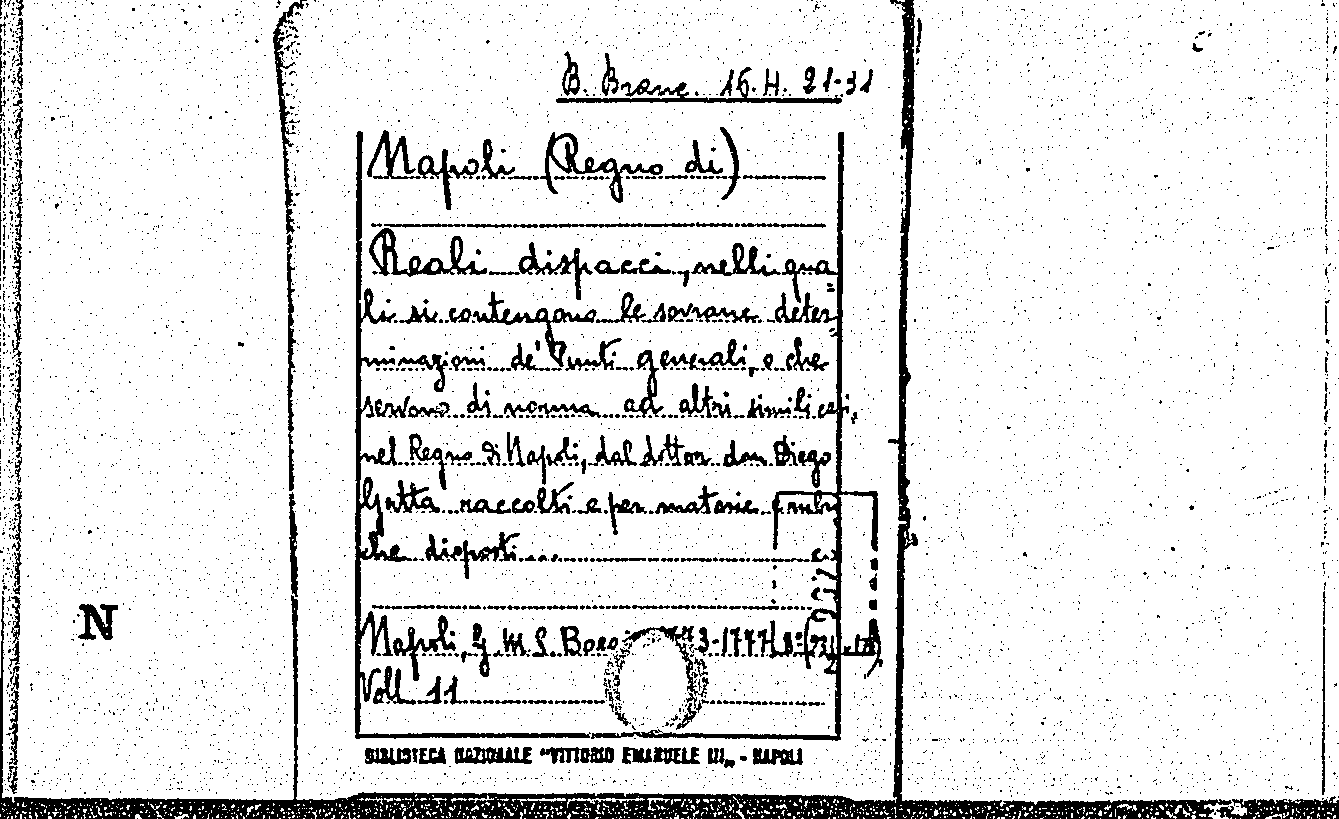 B. Branc. 16. H. 21-31
Napoli (Regno di)
Reali dispacci, nelli qua
li si contengono le sovrane deter
minazioni de' Punti generali, o che
servono di norma ad altri simili casi,
nel Regno di Napoli, dal dottor don Diego
Gatta raccolti e per materie e rubri
che disposti...
Napoli, G. M. S. 1773-1777 8º
Voll. 11
N
BIBLIOTECA NAZIONALE "VITTORIO EMANUELE III„ - NAPOLI